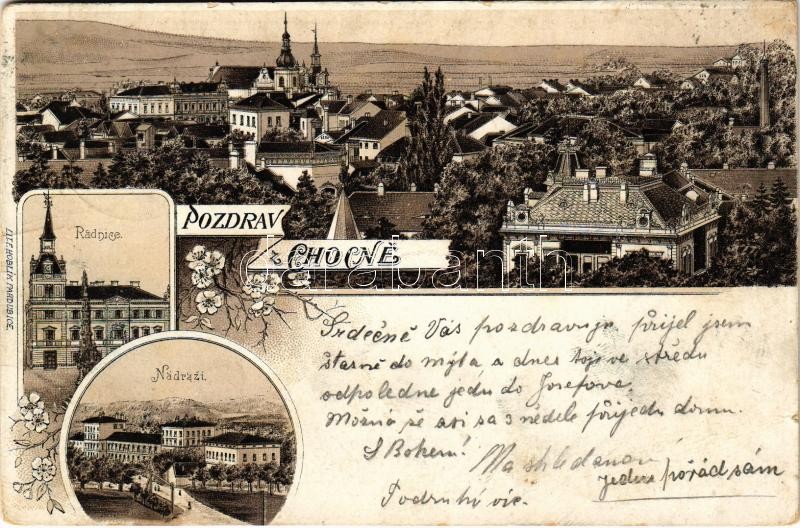 Radnice.
POZDRAV
z CHOCNĚ.
Nádraží.
LIT. F. HOBLÍK PARDUBICE.
Darabanth
Srdečně Vás pozdravuje. přijel jsem
šťasně do mýta, a dnes to je ve středu
odpoledne jedu do Josefova.
Možná že asi za 3 neděle přijedu domu.
S Bohem! Na shledanou
jedete pořád sám
Podruhý víc.